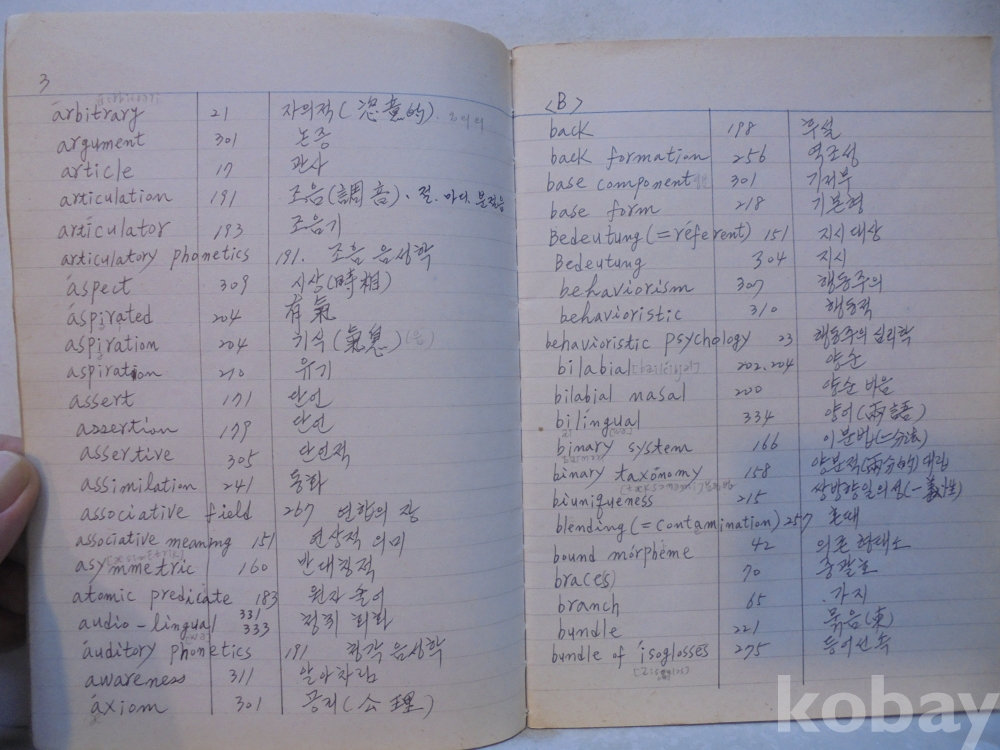 3
árbitrary 21 자의적(恣意的)
argument 301 논증
article 17 관사
articulation 191 조음(調音)、절. 마디. 분절음
articulator 193 조음기
articulatory phonetics 191. 조음 음성학
áspect 309 시상(時相)
áspirated 204 有氣
aspiration 204 기식(氣息)
aspiration 210 유기
assert 171 단언
assertion 179 단언
assertive 305 단언적
assimilation 241 동화
associative field 267 연합의 장
associative meaning 151 연상적 의미
asymmetric 160 반대칭적
atomic predicate 183 원자 술어
audio-lingual 331 333 청취 회화
áuditory phonetics 191 청각 음성학
awareness 311 알아차림
áxiom 301 공리(公理)
<B>
back 198 후설
back formation 256 역조성
base component 301 기저부
base form 218 기본형
Bedeutung (=réferent) 151 지시 대상
Bedeutung 304 지시
behaviorism 307 행동주의
behavioristic 310 행동적
behavioristic psychology 23 행동주의 심리학
bilabial 202.204 양순
bilabial nasal 200 양순 비음
bilíngual 334 양어(兩語)
binary system 166 이분법(二分法)
binary taxónomy 158 양분적(兩分的) 대립
biuniqueness 215 쌍방향일의성
blending (=contamination) 257 혼태
bound mórpheme 42 의존 형태소
braces 70 중괄호
branch 65 가지
bundle 221 묶음(束)
bundle of isoglosses 275 등어선 속
kobay